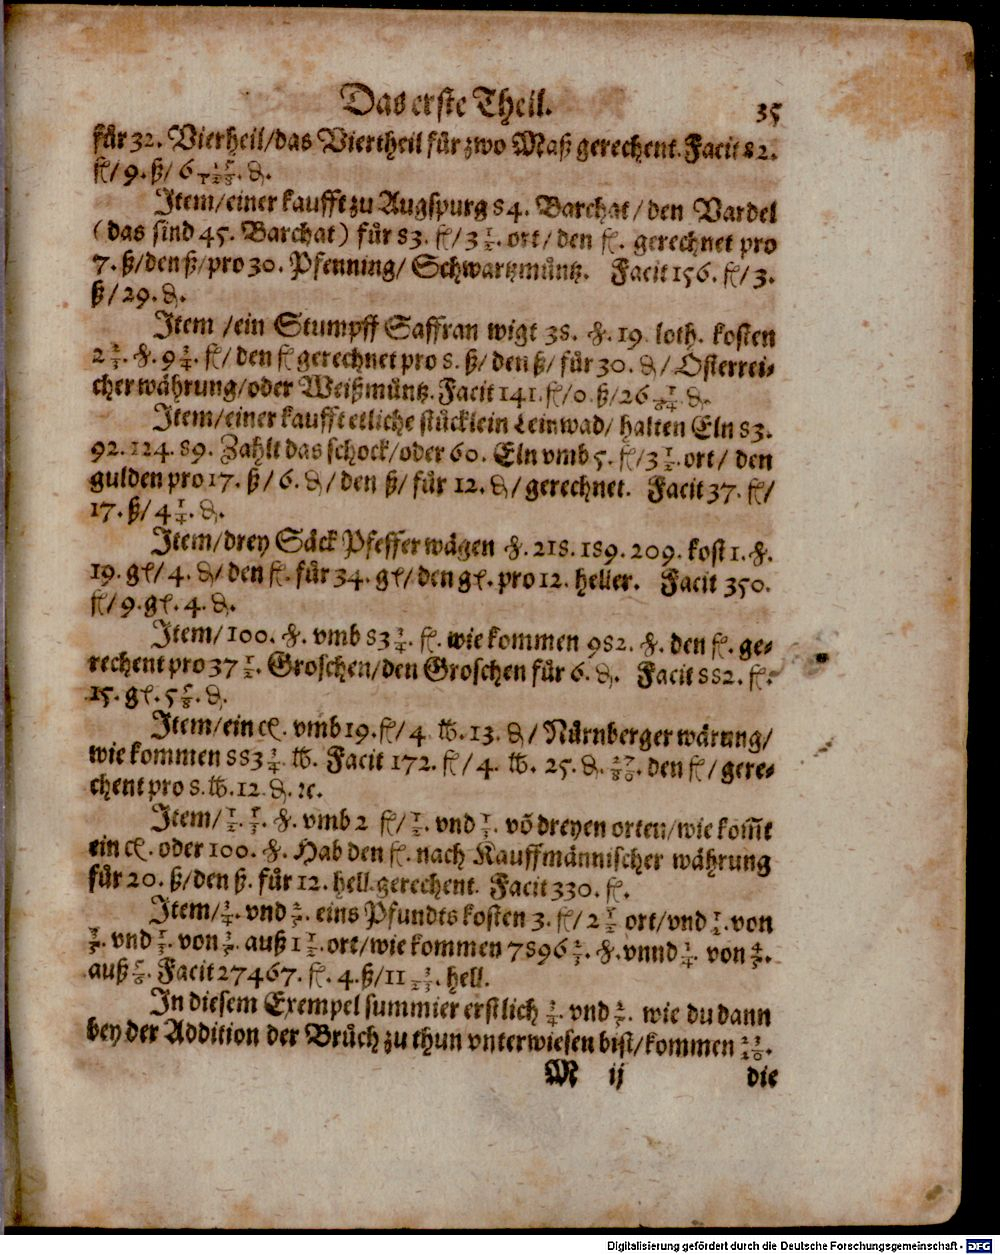 Das erste Theil. 35
für 32. Vierheil/das Viertheil für zwo Maß gerechent. Facit 82.
fl/ 9. ß/ 6 15/128. ₰.
Item/einer kaufft zu Augspurg 84. Barchat/den Vardel
(das sind 45. Barchat) für 83. fl/3 1/2. ort/den fl. gerechnet pro
7. ß/den ß/pro 30. Pfenning/ Schwartzmüntz. Facit 156. fl/ 3.
ß/29. ₰.
Item /ein Stumpff Saffran wigt 38. ℔. 19. loth. kosten
2 2/3. ℔. 9 3/4. fl/ den fl gerechnet pro 8. ß/ den ß/ für 30. ₰/ Osterrei⸗
cher währung/oder Weißmüntz. Facit 141. fl/0. ß/26 ₰.
Item/einer kaufft etliche stücklein Leinwad/ halten Eln 83.
92. 124. 89. Zahlt das schock/oder 60. Eln vmb 5. fl/3 1/2. ort/ den
gulden pro 17. ß/ 6. ₰/ den ß/ für 12. ₰/gerechnet. Facit 37. fl/
17. ß/ 4 1/4. ₰.
Item/drey Säck Pfeffer wägen ℔. 218. 189. 209. kost 1. ℔.
19. gl/ 4. ₰/ den fl. für 34. gl/den gl. pro 12. heller. Facit 350.
fl/ 9. gl. 4. ₰.
Item/100. ℔. vmb 83 3/4. fl. wie kommen 982. ℔. den fl. ge⸗
rechent pro 37 1/2. Groschen/den Groschen für 6. ₰. Facit 882. fl.
15. gl. 5 5/8. ₰.
Item/ein cl. vmb 19. fl/ 4 tb. 13. ₰/ Nürnberger wärung/
wie kommen 883 3/4. tb. Facit 172. fl/ 4. tb. 25. ₰. 27/80. den fl/ gere⸗
chent pro 8. tb. 12 ₰. ꝛc.
Item/ 1/2. 1/3. ℔. vmb 2 fl/ 1/2. vnd 1/3. võ dreyen orten/wie kom̃t
ein cl. oder 100. ℔. Hab den fl. nach Kauffmännischer währung
für 20. ß/den ß. für 12. hell. gerechent. Facit 330. fl.
Item/ 3/4. vnd 2/5. eins Pfundts kosten 3. fl/ 2 1/2 ort/vnd 1/2. von
vnd von auß 1 1/2. ort/wie kommen 7896 2/3. ℔. vnnd 3/4. von 4/5.
auß 5/6. Facit 27467. fl. 4. ß/11 hell.
In diesem Exempel summier erstlich 3/4 vnd 2/5. wie du dann
bey der Addition der Brüch zu thun vnterwiesen bist/kommen 23/20.
M ij die
Digitalisierung gefördert durch die Deutsche Forschungsgemeinschaft - DFG